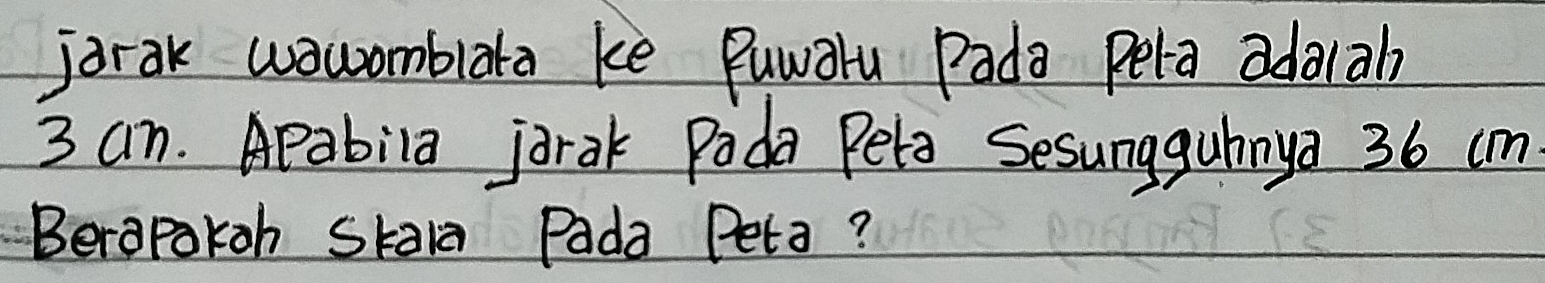 jarak wawomblata ke Puwatu Pada Peta adalah
3 cm. Apabila jarak Pada Peta Sesungguhnya 36 cm.
Berapakah Skala Pada Peta?